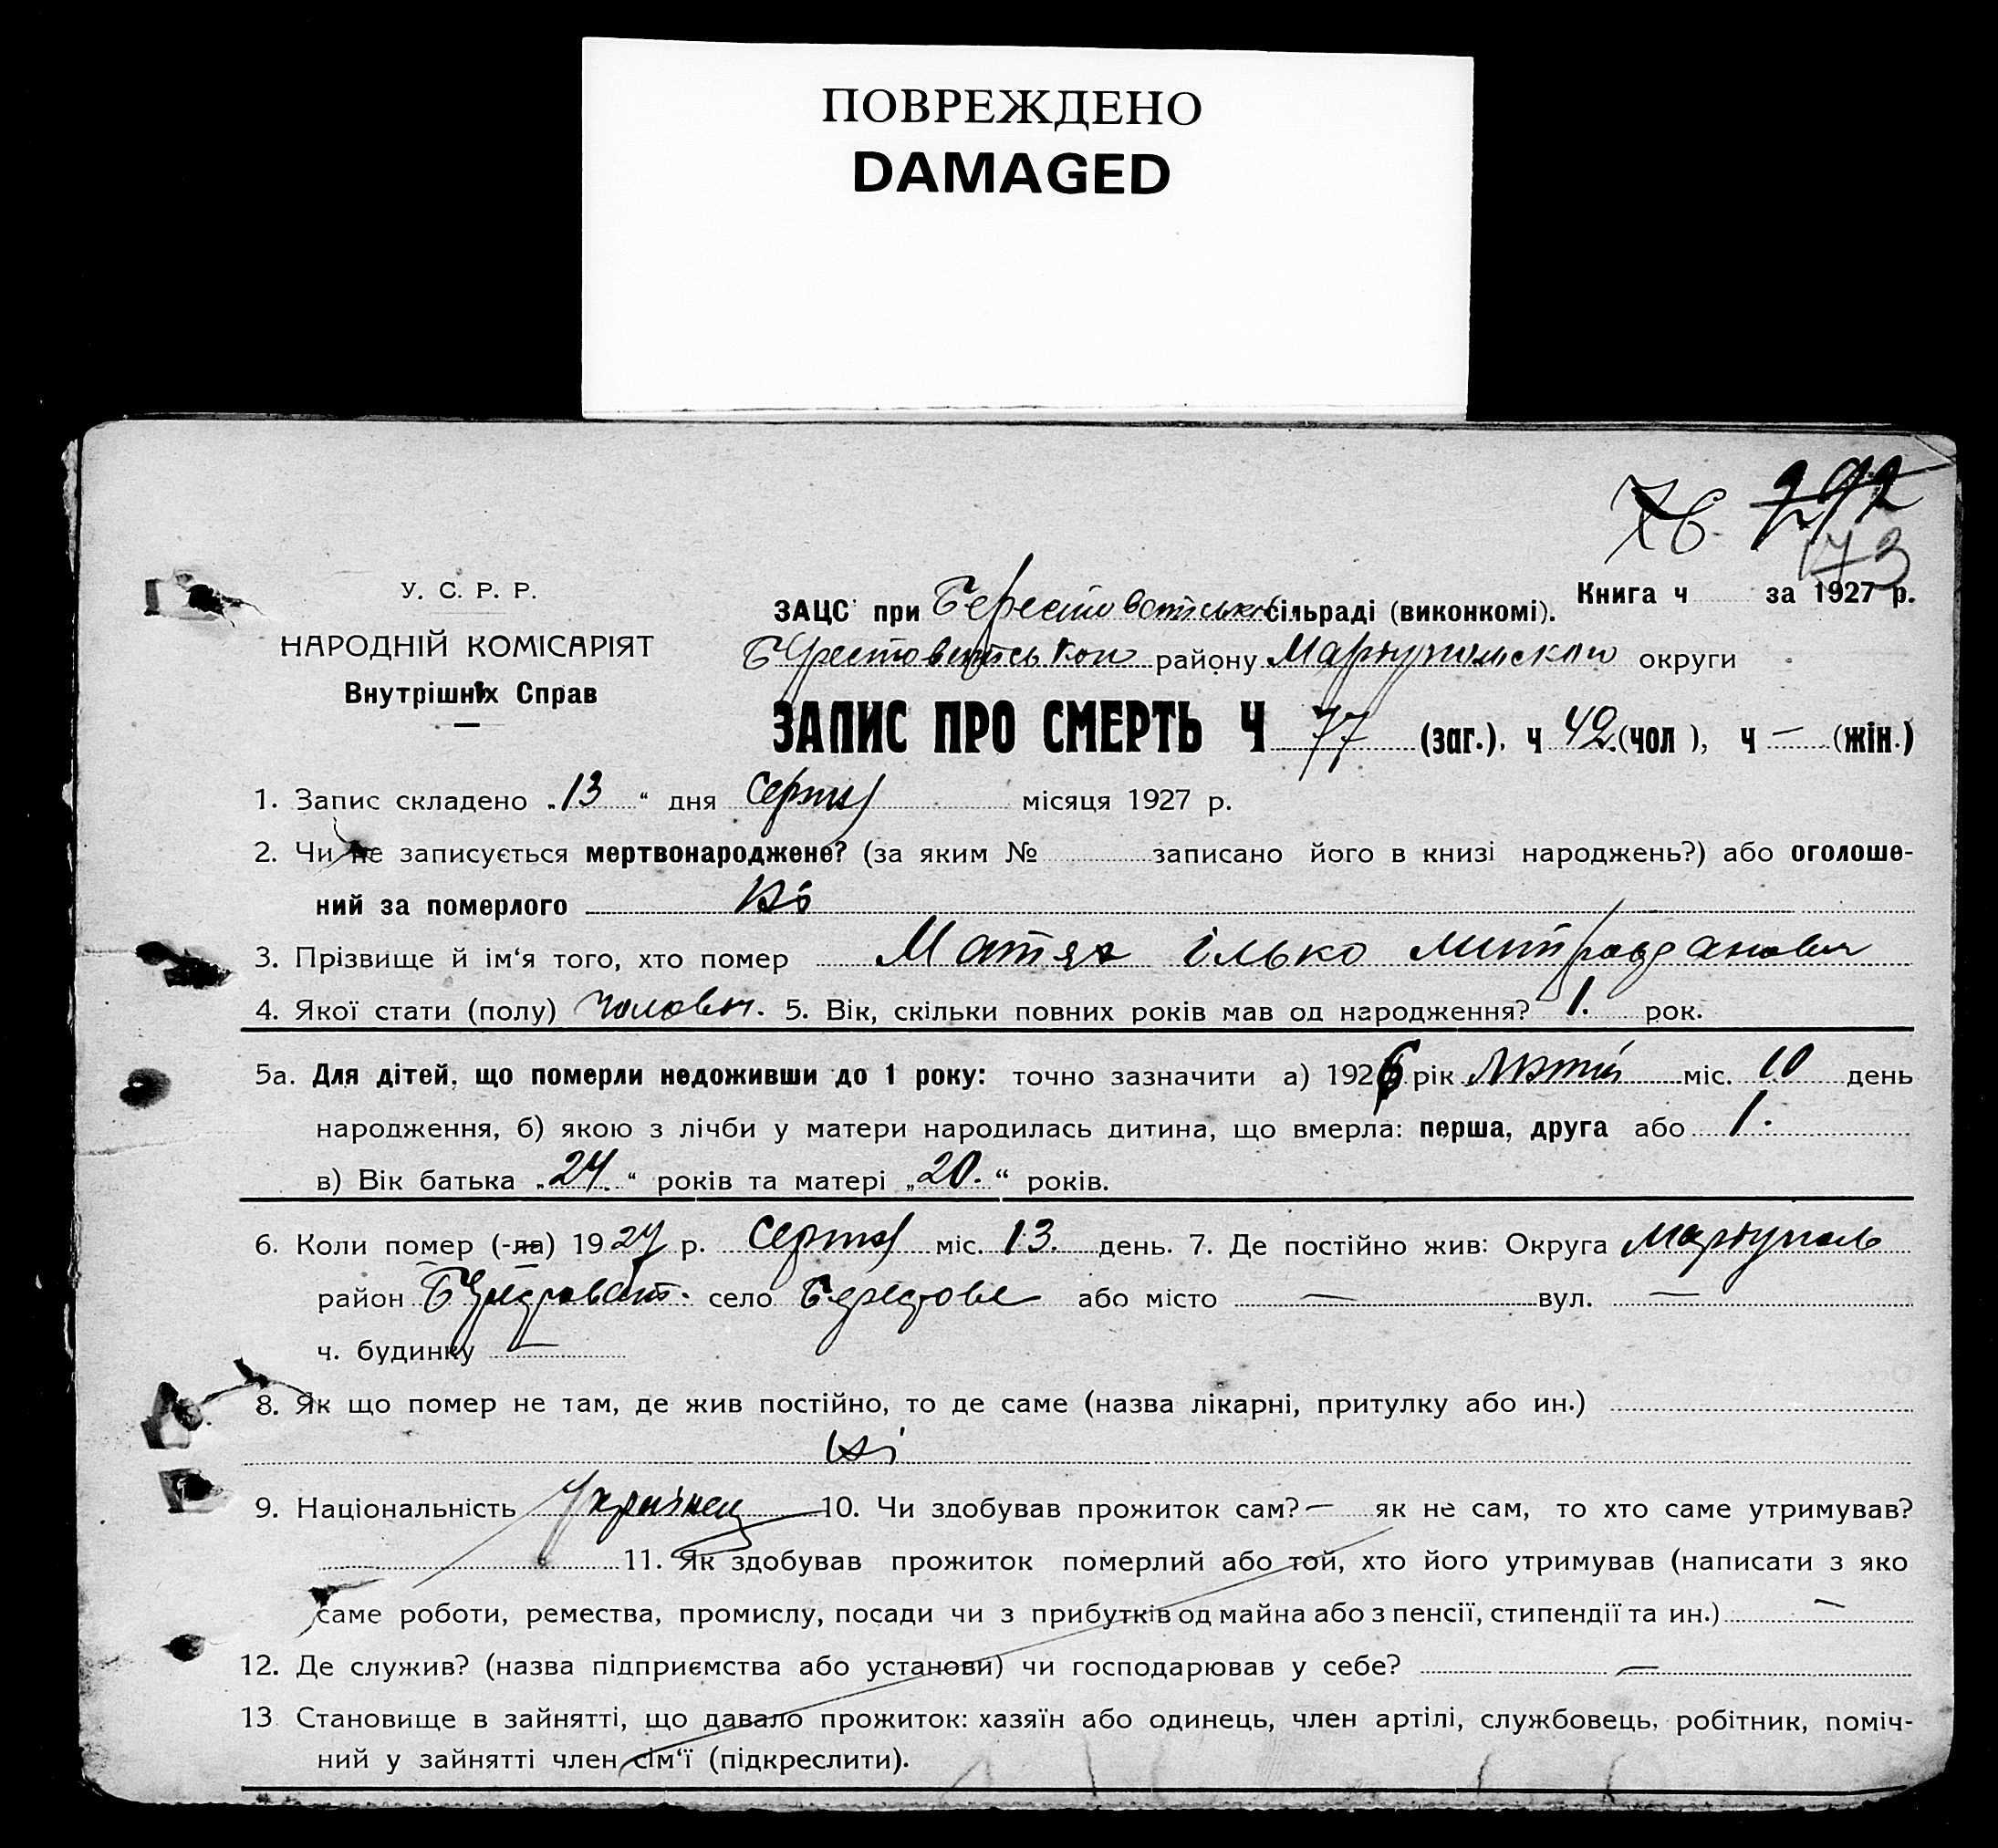 ПОВРЕЖДЕНО
DAMAGED
292
76.
173
У. С. Р. Р.
НАРОДНІЙ КОМІСАРІЯТ
Внутрішніх Справ
Книга ч за 1927 р.
ЗАЦС при Берестоватській сільраді (виконкомі).
району Маріупольскои округи
ЗАПИС ПРО СМЕРТЬ Ч 77 (заг.), ч 42 (чол ), ч — (жін.)
1. Запис складено „13“ дня серпня місяця 1927 р.
2. Чи не записується мертвонароджене? (за яким № записано його в книзі народжень?) або оголоше-
ний за померлого ні
3. Прізвище й ім‘я того, хто помер Матях Ілько Митрофанович
4. Якої стати (полу) чоловіч. 5. Вік, скільки повних років мав од народження? 1. рок.
5а. Для дітей, що померли недоживши до 1 року: точно зазначити а) 1926 рік Лютий міс. 10 день
народження, б) якою з лічби у матери народилась дитина, що вмерла: перша, друга або 1.
в) Вік батька „24.“ років та матері „20.“ років.
6. Коли помер (-ла) 1927 р. серпня міс. 13. день. 7. Де постійно жив: Округа Маріуполь
район село Берестове або місто — вул. —
ч. будинку —
8. Як що помер не там, де жив постійно, то де саме (назва лікарні, притулку або ин.)
ні
9. Національність Українец 10. Чи здобував прожиток сам? — як не сам, то хто саме утримував?
11. Як здобував прожиток померлий або той, хто його утримував (написати з яко
саме роботи, ремества, промислу, посади чи з прибутків од майна або з пенсії, стипендії та ин.) —
12. Де служив? (назва підприємства або установи) чи господарював у себе? —
13 Становище в зайнятті, що давало прожиток: хазяїн або одинець, член артілі, службовець, робітник, поміч-
ний у зайнятті член сім‘ї (підкреслити).